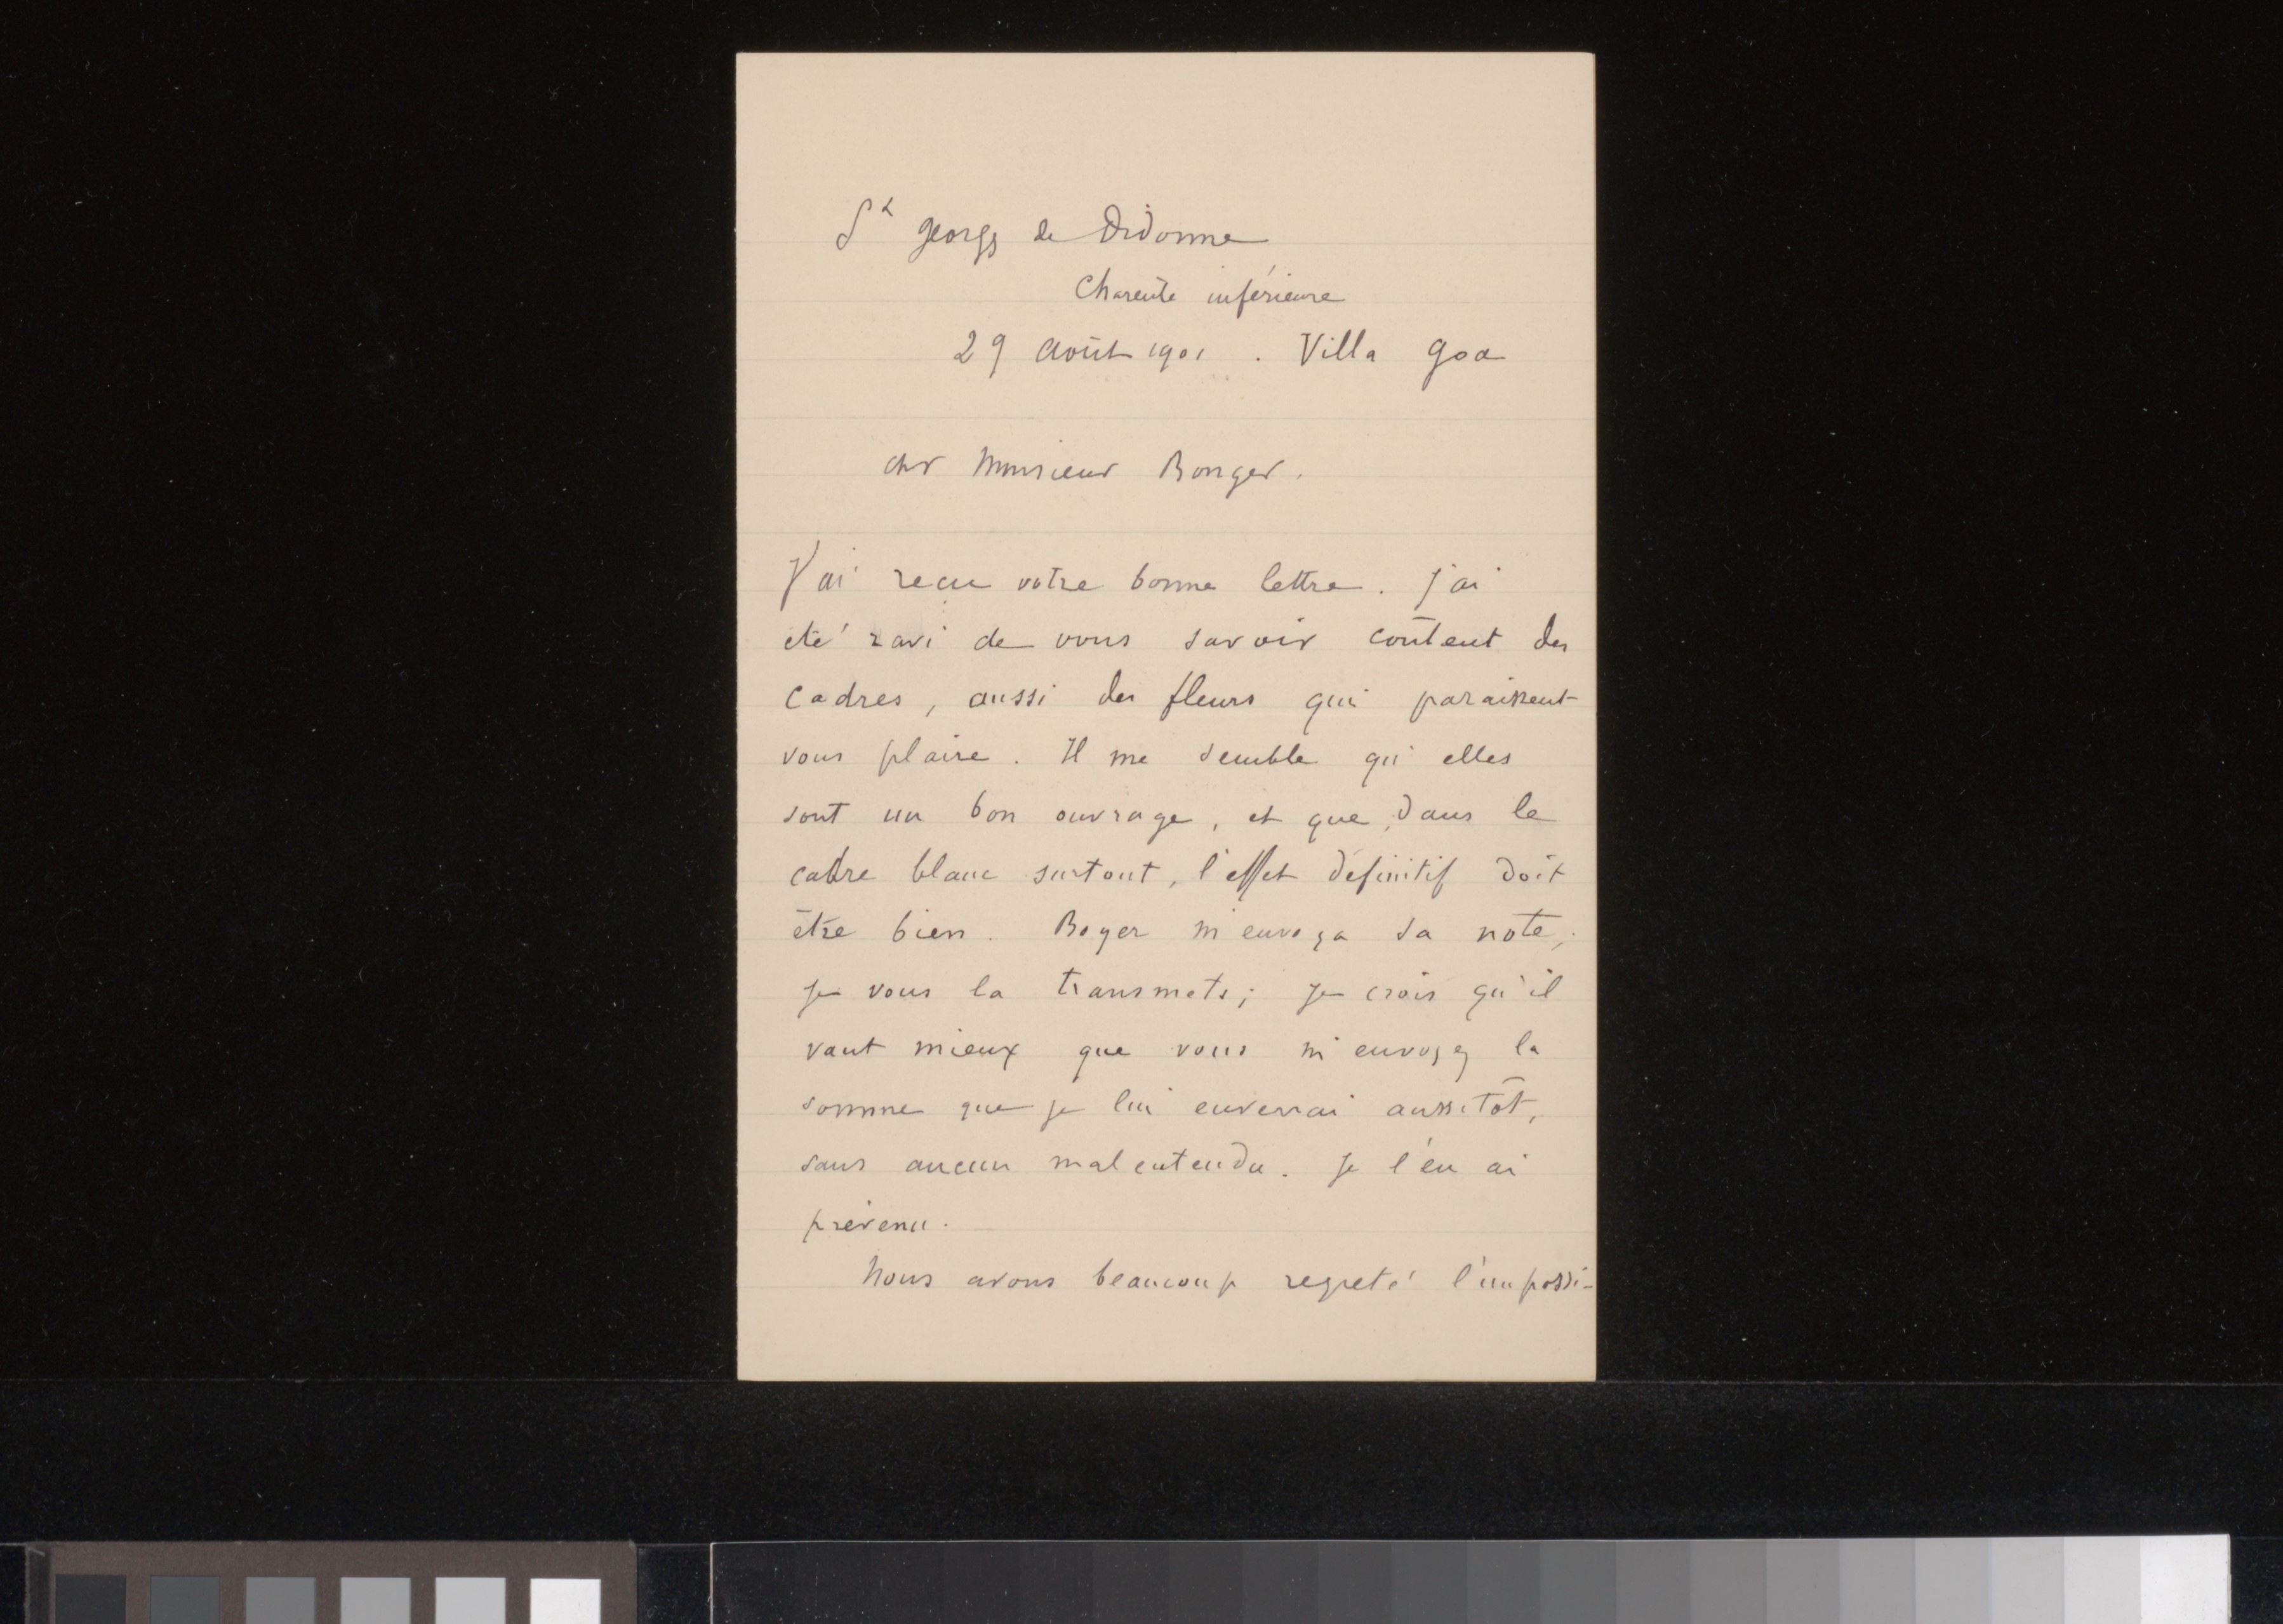 St Georges de Didonne
Charente inférieure
29 Août 1901 . Villa Goa
cher Monsieur Bonger.
J'ai recu votre bonne lettre. j'ai
été ravi de vous savoir content des
cadres, aussi des fleurs qui paraissent
vous plaire. Il me semble qu'elles
sont un bon ouvrage, et que, dans le
cadre blanc surtout, l'effet définitif doit
être bien. Boyer m'envoya sa note;
je vous la transmets; je crois qu'il
vaut mieux que vous m'envoyez la
somme que je lui enverrai aussitôt,
sans aucun malentendu. Je l'en ai
prévenu.
Nous avons beaucoup regreté l'impossi-